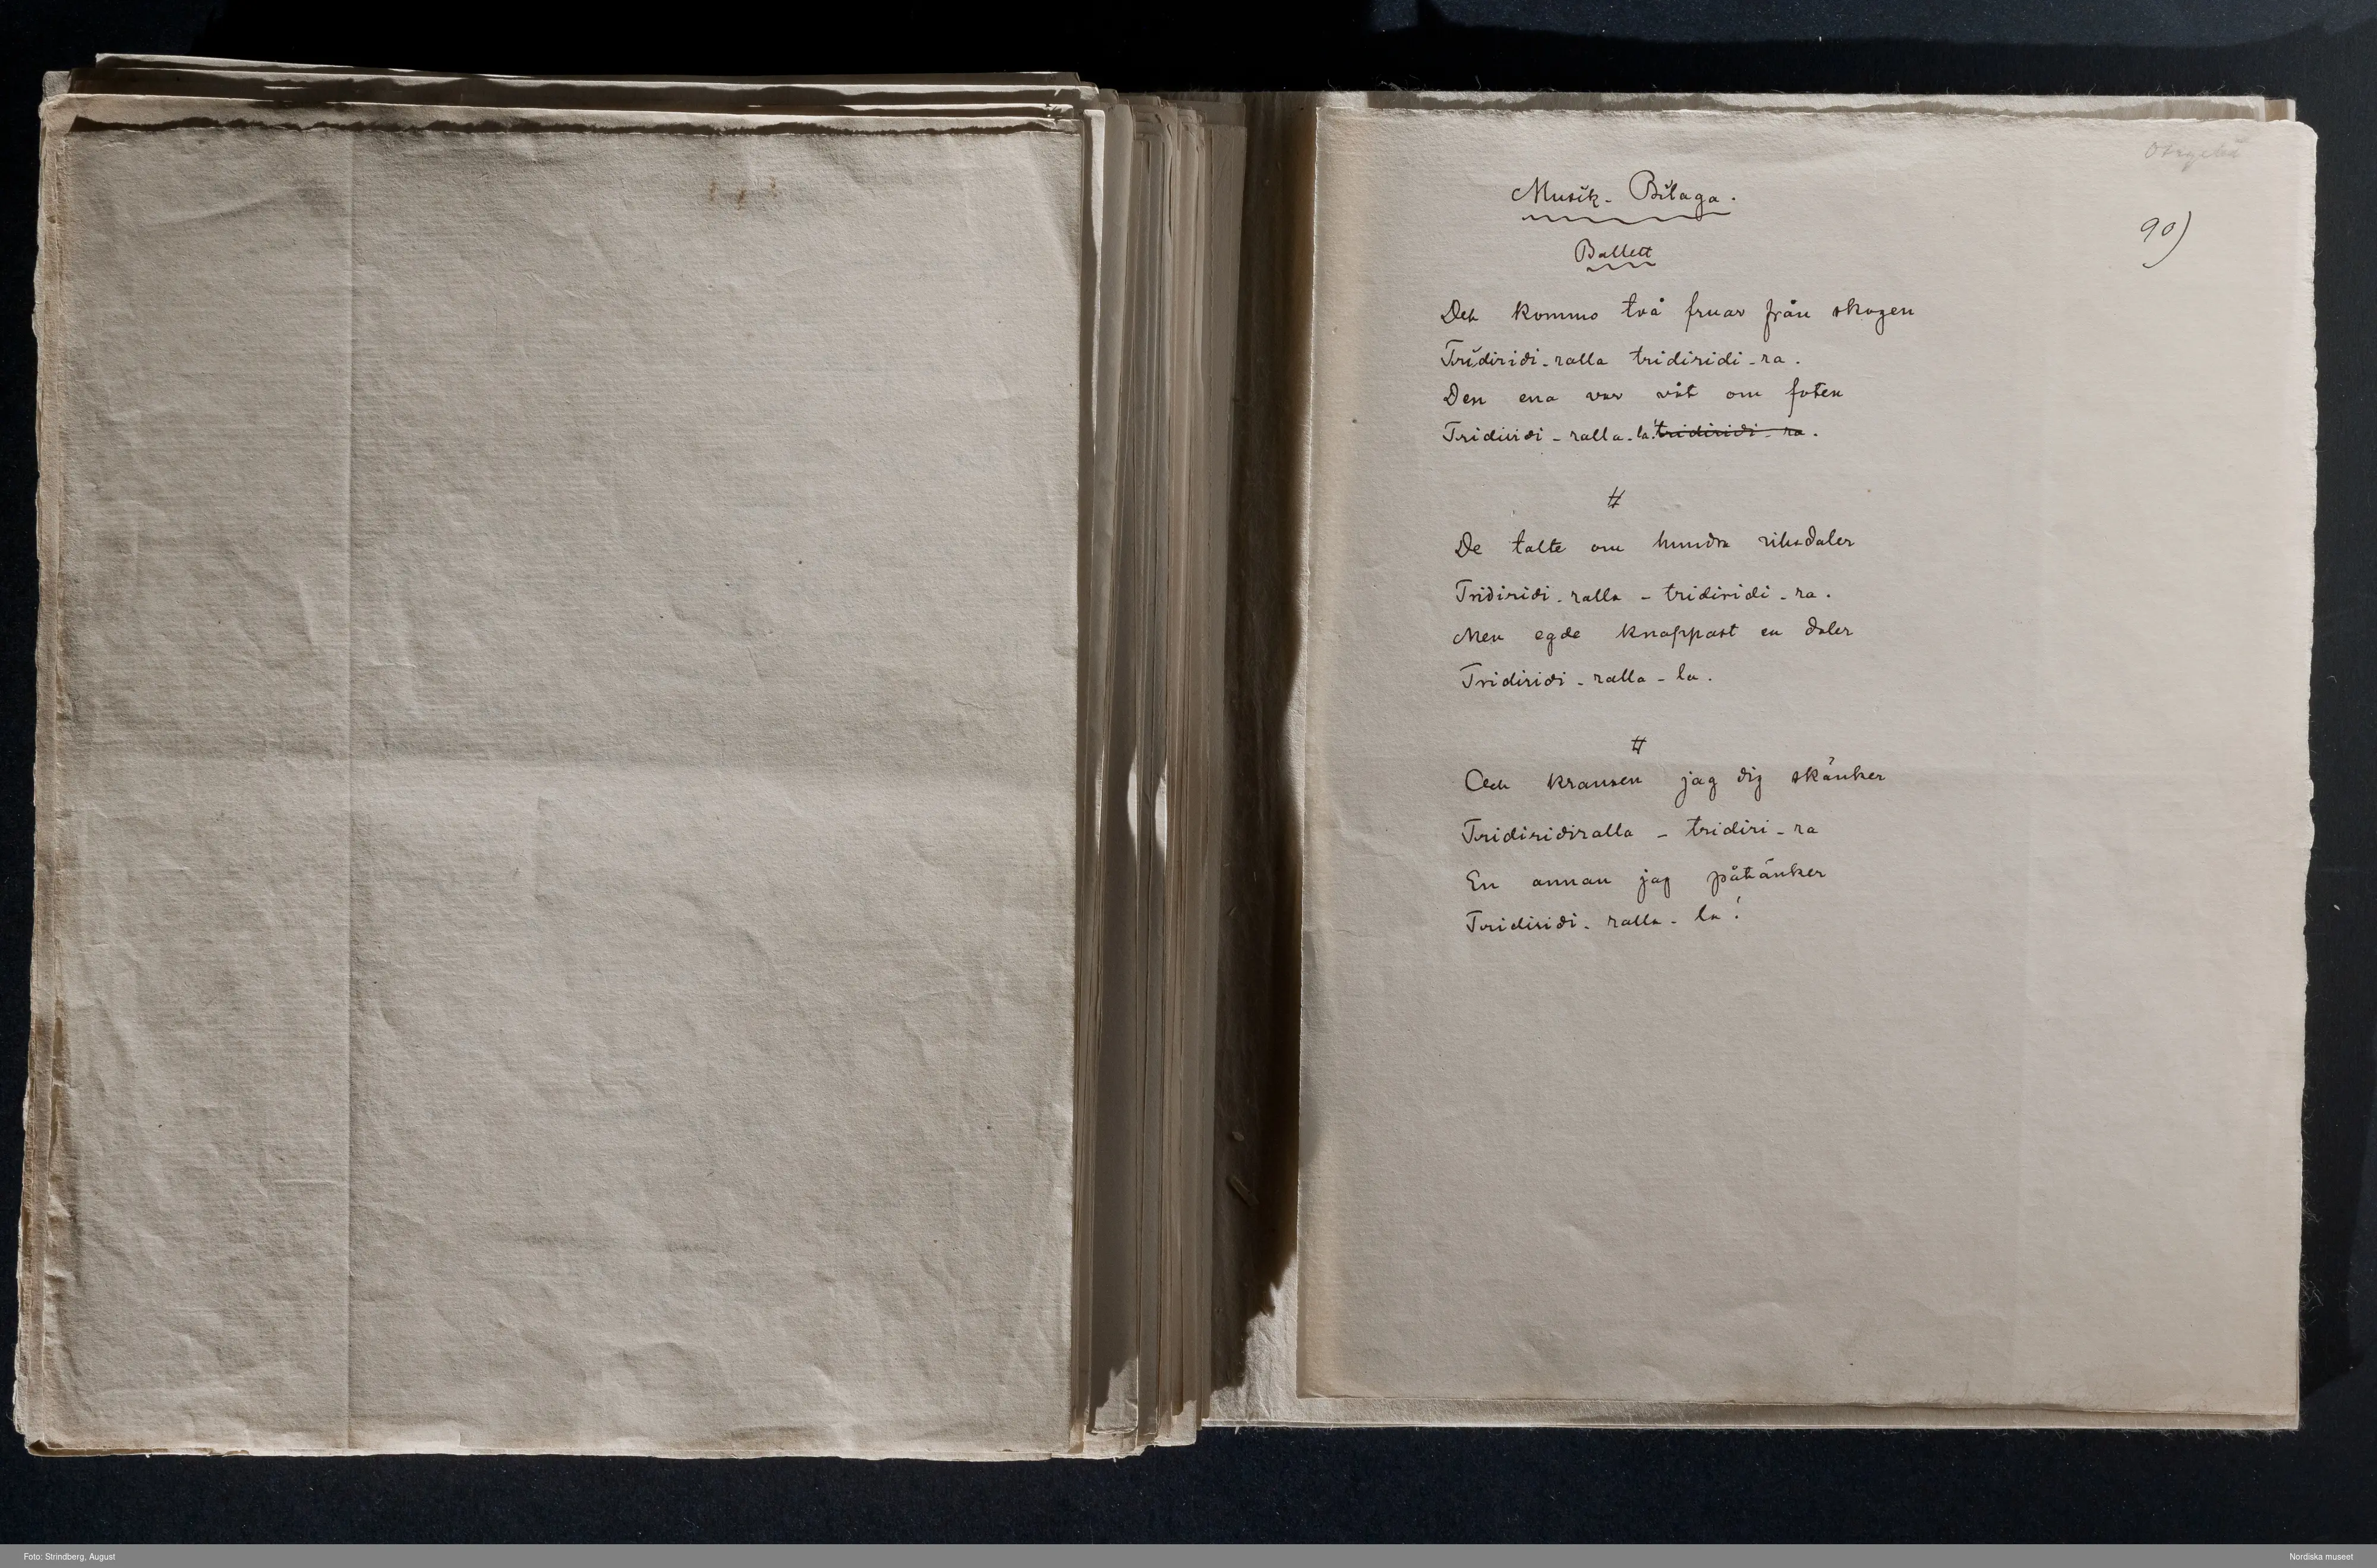 Otryckt
Musik-Bilaga.
90)
Ballett
Det kommo två fruar från skogen
Tridiridi-ralla tridiridi-ra.
Den ena var våt om foten
Tridiridi-ralla-la! tridiridi-ra.
#
De talte om hundra riksdaler
Tridiridi-ralla-tridiridi-ra.
Men egde knappast en daler
Tridiridi-ralla-la.
#
Och kransen jag dig skänker
Tridiridiralla-tridiri-ra
En annan jag påtänker
Tridiridi-ralla-la!
Foto: Strindberg, August
Nordiska museet